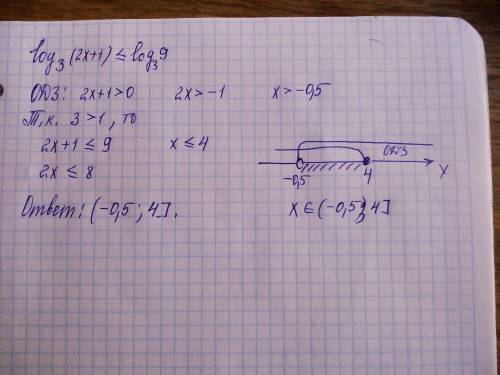 log₃(2x+1) ≤ log₃9
ОДЗ: 2x+1>0 2x>-1 x>-0,5
Т.к. 3>1, то
2x+1 ≤ 9 x ≤ 4
2x ≤ 8
ОДЗ
-0,5 4 x
Ответ: (-0,5; 4].
x ∈ (-0,5; 4]